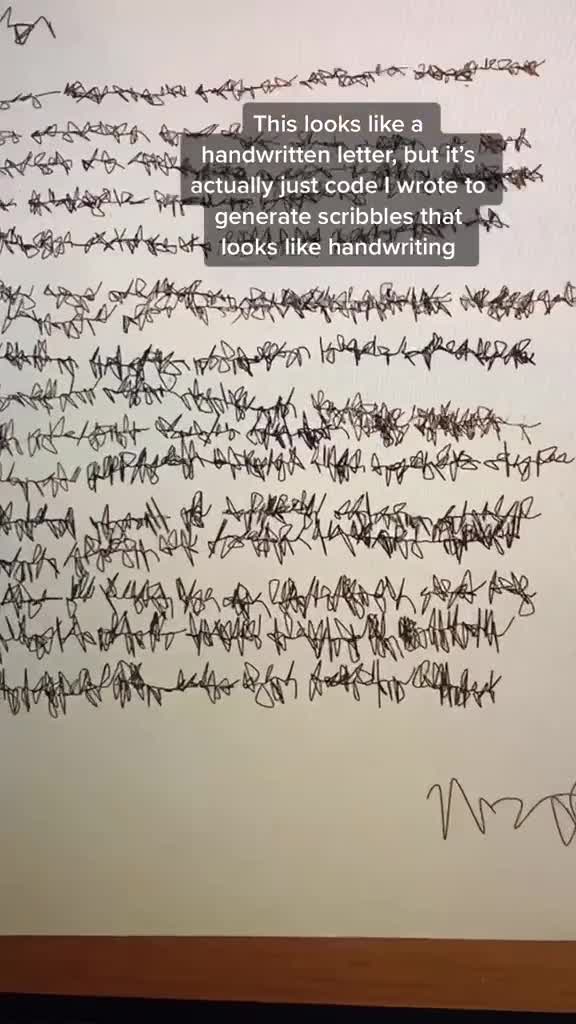 This looks like a
handwritten letter, but it's
actually just code I wrote to
generate scribbles that
looks like handwriting